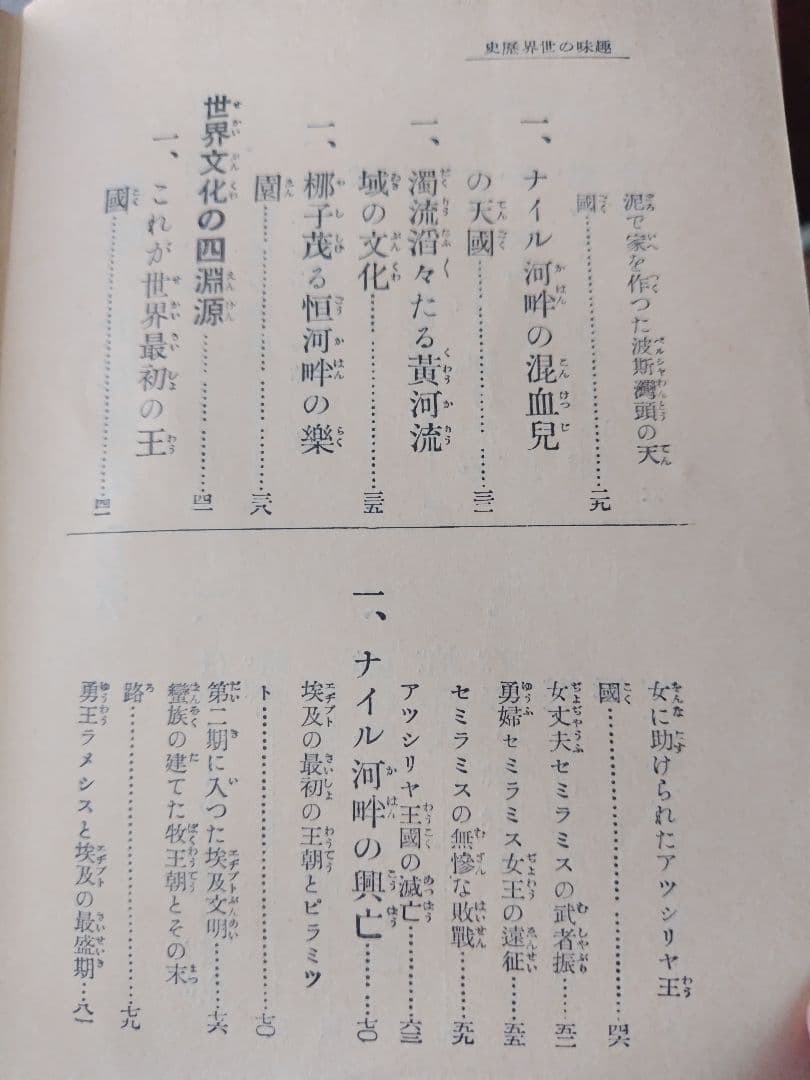 史歴界世の味趣
泥で家を作つた波斯灣頭の天
國……二九
一、ナイル河畔の混血兒
の天國……三二
一、濁流滔々たる黃河流
域の文化……三五
一、梛子茂る恒河畔の樂
園……三八
世界文化の四淵源……四一
一、これが世界最初の王
國……四一
女に助けられたアツシリヤ王
國……四六
女丈夫セミラミスの武者振……五二
勇婦セミラミス女王の遠征……五五
セミラミスの無慘な敗戰……五九
アツシリヤ王國の滅亡……六三
一、ナイル河畔の興亡……七〇
埃及の最初の王朝とピラミツ
ト……七〇
第二期に入つた埃及文明……七六
蠻族の建てた牧王朝とその末
路……七九
勇王ラメシスと埃及の最盛期……八一